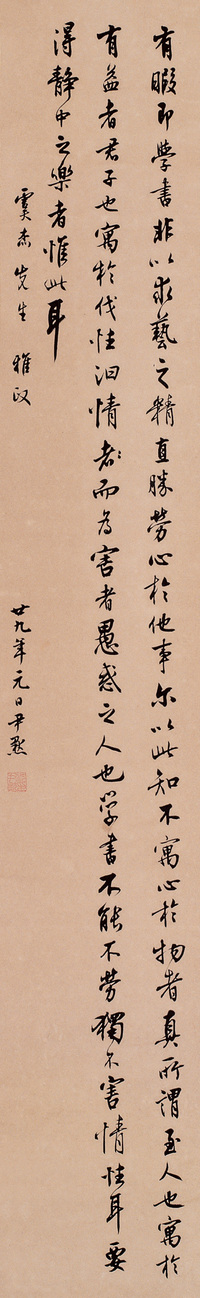 有暇即學書非以求藝之精直勝勞心於他事尔以此知不寓心於物者真所謂至人也寓於
有益者君子也寓於伐性汩情者而為害者愚惑之人也学書不能不勞獨不害情性耳要
得静中之樂者惟此耳
雯杰先生雅政
廿九年元日尹默